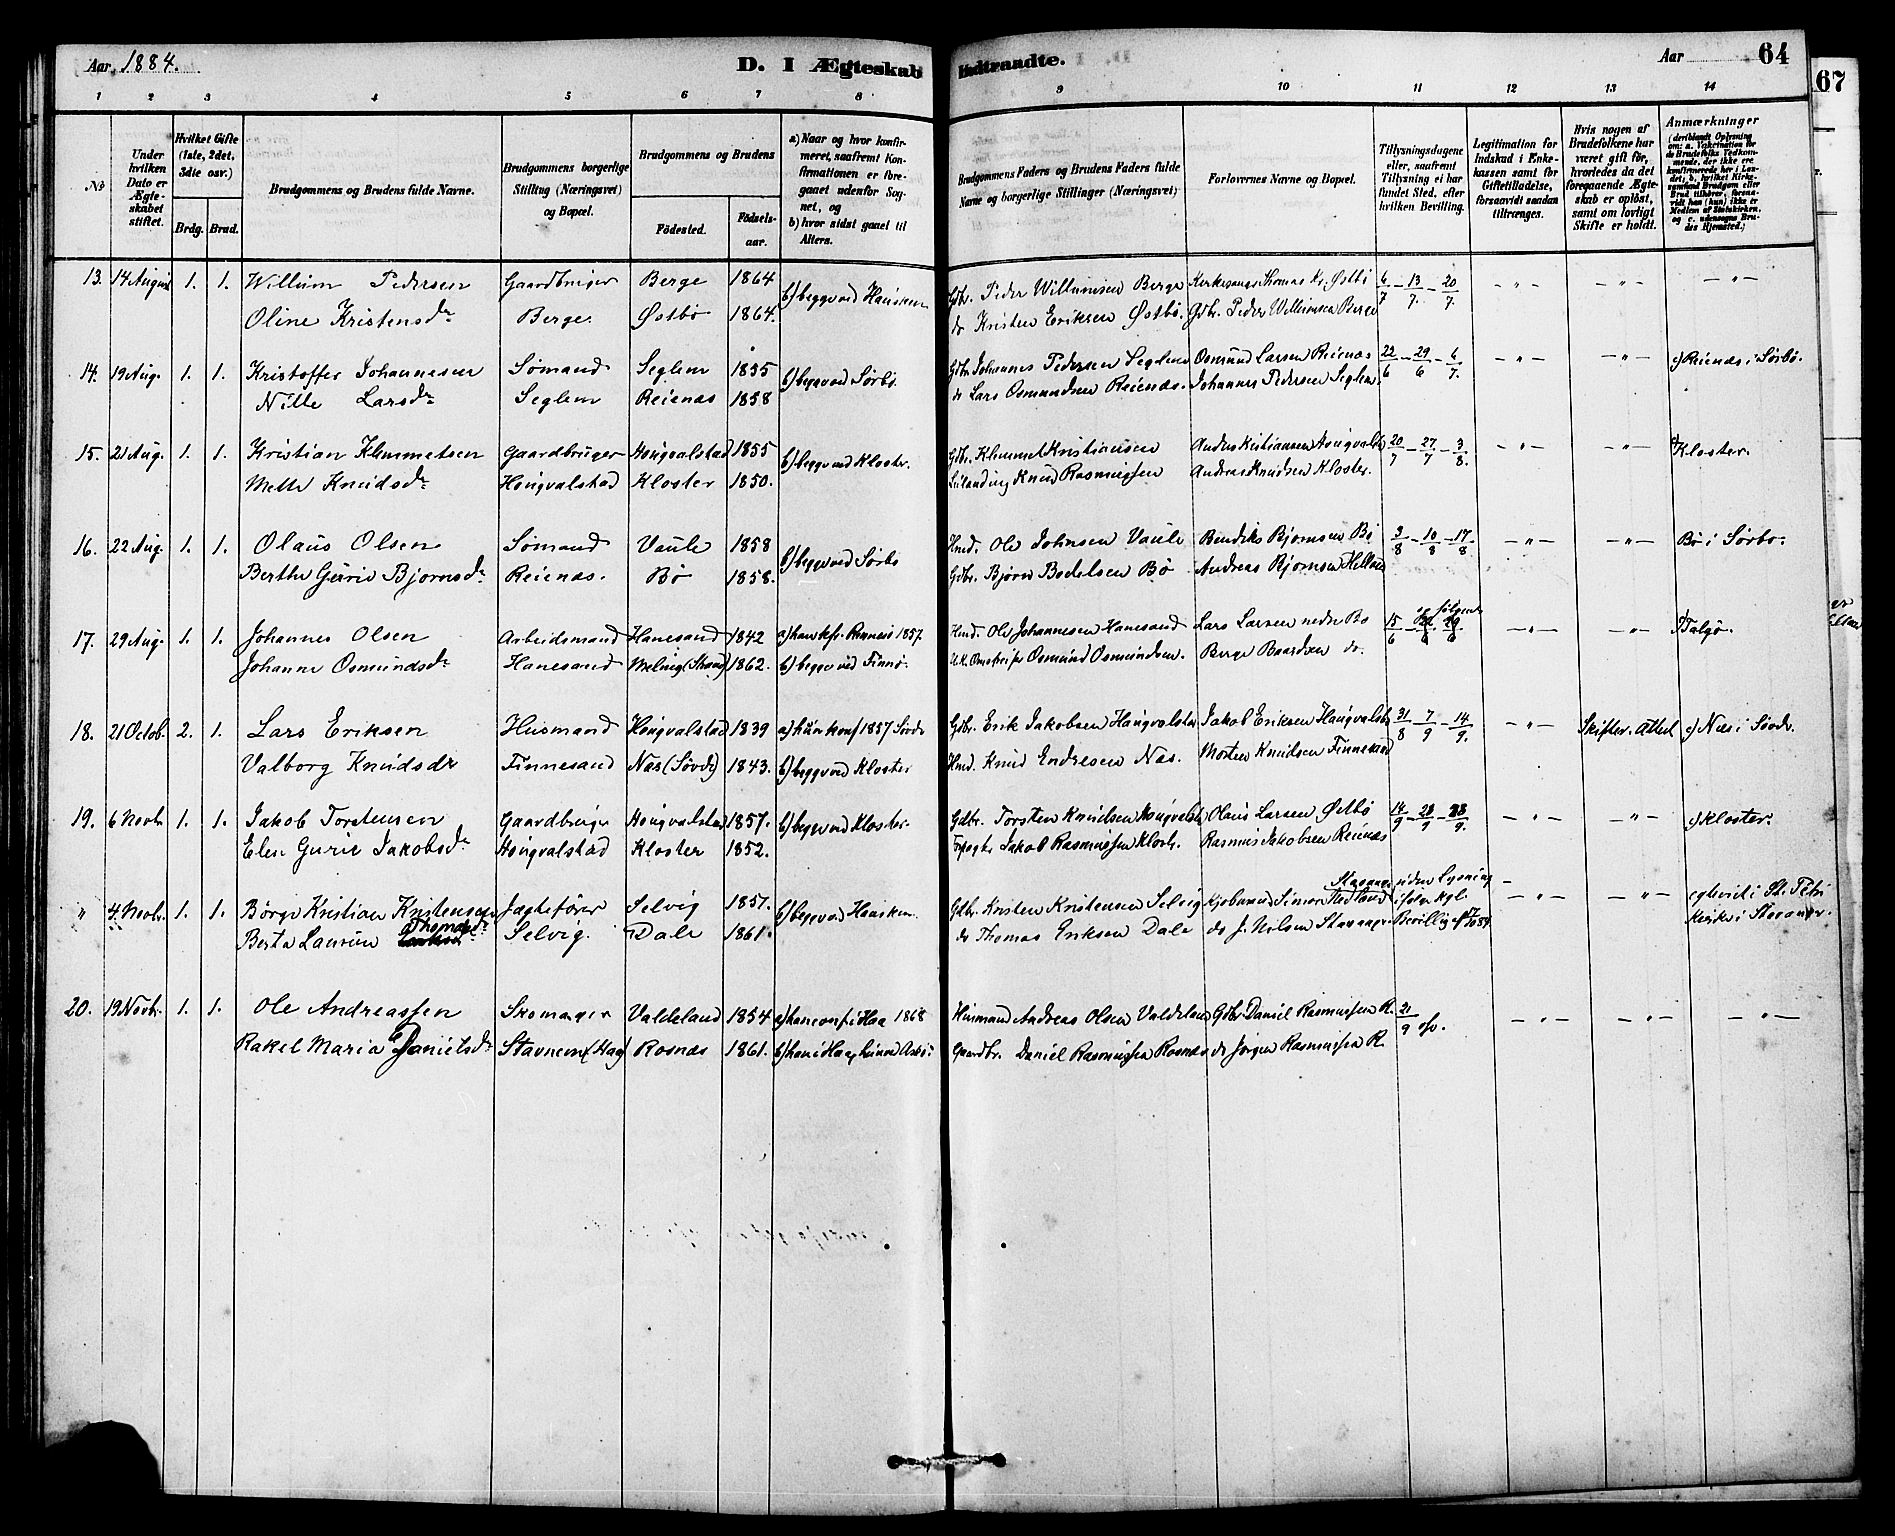 Aar 1884.
D. I Ægteskab Indtraadte.
Aar 64
67
1 2 3 4 5 6 7 8 9 10 11 12 13 14
No
Under hvilken Dato er Ægteskabet stiftet.
Hvilket Gifte (1ste, 2det, 3die osv.)
Brdg. Brud.
Brudgommens og Brudens fulde Navne.
Brudgommens borgerlige Stilling (Næringsvei) og Bopæl.
Brudgommens og Brudens
Födested. Födselsaar.
a) Naar og hvor konfirmeret, saafremt Konfirmationen er foregaaet udenfor Sognet, og
b) hvor sidst gaaet til Alters.
Brudgommens Faders og Brudens Faders fulde Navne og borgerlige Stillinger (Næringsvei)
Forlovernes Navne og Bopæl.
Tillysningsdagene eller, saafremt Tillysning ei har fundet Sted, efter hvilken Bevilling.
Legitimation for Indskud i Enkekassen samt for Giftetilladelse, forsaavidt saadan tiltrænges.
Hvis nogen af Brudefolkene har været gift för, hvorledes da det foregaaende Ægteskab er oplöst, samt om lovligt Skifte er holdt.
Anmærkninger
13. 14 August 1. 1. Willum Pedersen Gaardbruger Berge 1864 b) begge ved Hausken Gdbr. Peder Willumsen Berge Kirkesanger Thomas Kr. Østbö 6/7 - 13/7. - 20/7. - " - - " - - " -
Oline Kristensdr Berge. Østbö 1864. do Kristen Eriksen Østbö. Gdbr. Peder Willumsen Berge
14. 19 Aug. 1. 1. Kristoffer Johannesen Sømand Seglem 1855 b) begge ved Sörbö. Gdbr. Johannes Pedersen Seglem Osmund Larsen Reienæs 22/6 - 29/6 - 6/7. - " - - " - c) Reienæs i Sörbö.
Nille Larsdr Seglem Reienæs 1858 do Lars Osmundsen Reienæs. Johannes Pedersen Seglem.
15. 21 Aug. 1. 1. Kristian Klemmetsen Gaardbruger Hougvalstad 1855 b) begge ved Kloster. Gdbr. Klemmet Kristiansen Anders Kristiansen Hougvalstad 20/7 - 27/7 - 3/8. - " - - " - Kloster.
Mette Knudsdr Hougvalstad Kloster 1850. Knud Rasmussen Andreas Knudsen Kloster.
16. 22 Aug. 1. 1. Olaus Olsen Sømand Vaule 1858 b) begge ved Sörbö Hmd. Ole Johnsen Vaule Bendiks Bjørnsen Bö 3/8 - 10/8 - 17/8. - " - - " - Bö i Sörbo.
Berthe Gurie Bjørnsdr Reienæs. Bø 1858. Gdbr. Bjørn Bodelsen Bø Andreas Bjørnsen
17. 29 Aug. 1. 1. Johannes Olsen Arbeidsmand Hanesand 1842 a) han kfr. Rennesö 1857. Hmd. Ole Johannesen Hanesand Lars Larsen nedre Bö 15/6 følgende - " - - " - Talgø.
Johanne Osmundsdr Hanesand Meling (Strand) 1862. b) begge ved Finnö. Osmund Osmundsen. Berge Baardsen do.
18. 21 Octob. 2. 1. Lars Eriksen Husmand Hougvalstad 1839 a) hun konf 1857 Sövde Gdbr. Erik Jakobsen Haugvalstad Jakob Eriksen Haugvalstad 31/8 - 7/9 - 14/9. - " - Skifter. Attest c) Næs i Sövde.
Valborg Knudsdr Finnesand Næs (Sövde) 1843. b) begge ved Kloster Hmd. Knud Endresen Næs. Morten Knudsen Finnesand
19. 6 Novbr. 1. 1. Jakob Torstensen Gaardbruger Hougvalstad 1857. b) begge ved Kloster. Gdbr. Torsten Knudsen Hougvalstad Olaus Larsen Østbö 14/9 - 21/9 - 28/9. - " - - " - c) Kloster.
Elen Gurie Jakobsdr Hougvalstad Kloster 1852. Jakob Rasmussen Klostr. Rasmus Jakobsen Reienæs
" 4 Novbr. 1. 1. Børge Kristian Kristensen Jægtefører Selvig 1857. b) begge ved Hausken Gdbr. Kristen Kristensen Selvig Kjøbmand Simon Stavanger uden Lysning - " - - " - c) viet i St. Petri
Berta Laurine Thomasdr Selvig. Dale 1861. do Thomas Eriksen Dale do J. Nilsen Stavanger. ifølge kgl. Bevilling af 84 kirke i Stavanger.
20. 19 Novbr. 1. 1. Ole Andreassen Skomager Valdeland 1854 a) han conf i Haa 1868 Husmand Andreas Olsen Valdeland Gdbr Daniel Rasmussen R. 21/9 osv. - " - - " - - " -
Rakel Maria Danielsdr Stavnem (Haa) Rosnæs 1861. b) han i Haa, hun i Gaardbr. Daniel Rasmussen Rosnæs do Jørgen Rasmussen R.